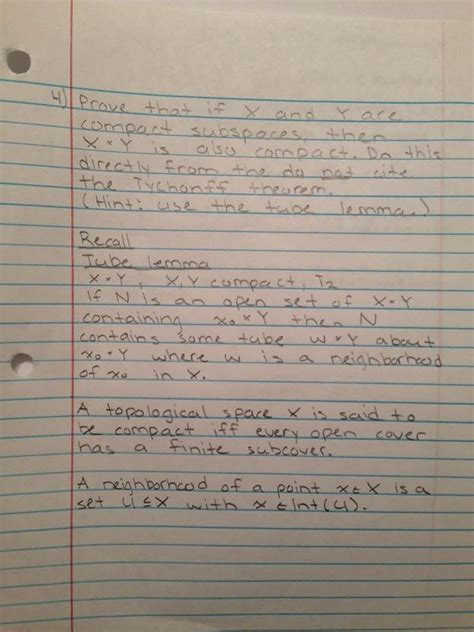 4) Prove that if X and Y are
compact subspaces, then
X × Y is also compact. Do this
directly from the do not cite
the Tychonff theorem.
(Hint: use the tube lemma.)
Recall
Tube lemma
X × Y, X, Y compact, T₂
If N is an open set of X × Y
containing x₀ × Y then N
contains some tube W × Y about
x₀ × Y where W is a neighborhood
of x₀ in X.
A topological space X is said to
be compact iff every open cover
has a finite subcover.
A neighborhood of a point x ∈ X is a
set U ⊆ X with x ∈ Int(U).